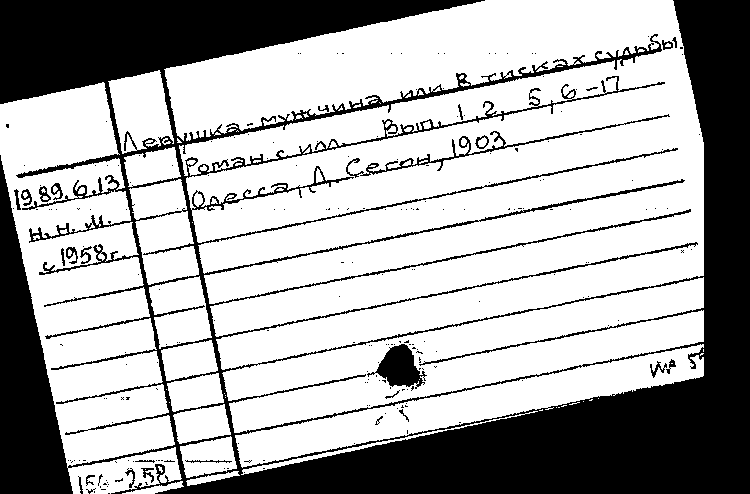 Девушка-мужчина, или В тисках судьбы.
Роман с илл. Вып. 1, 2, 5, 6-17
Одесса, Д. Сегон, 1903.
19.89.6.13
н.н.м.
с 1958г.